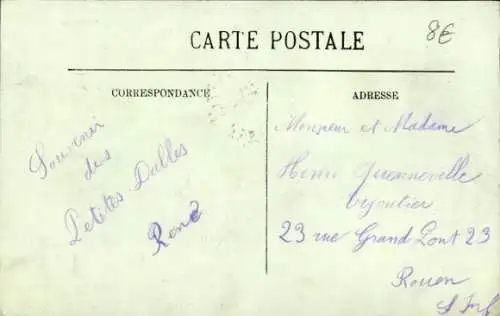 CARTE POSTALE
8€
CORRESPONDANCE
Souvenir
des
Petites-Dalles
René
ADRESSE
Monsieur et Madame
Henri Quenneville
bijoutier
23 rue Grand Pont 23
Rouen
S Inf